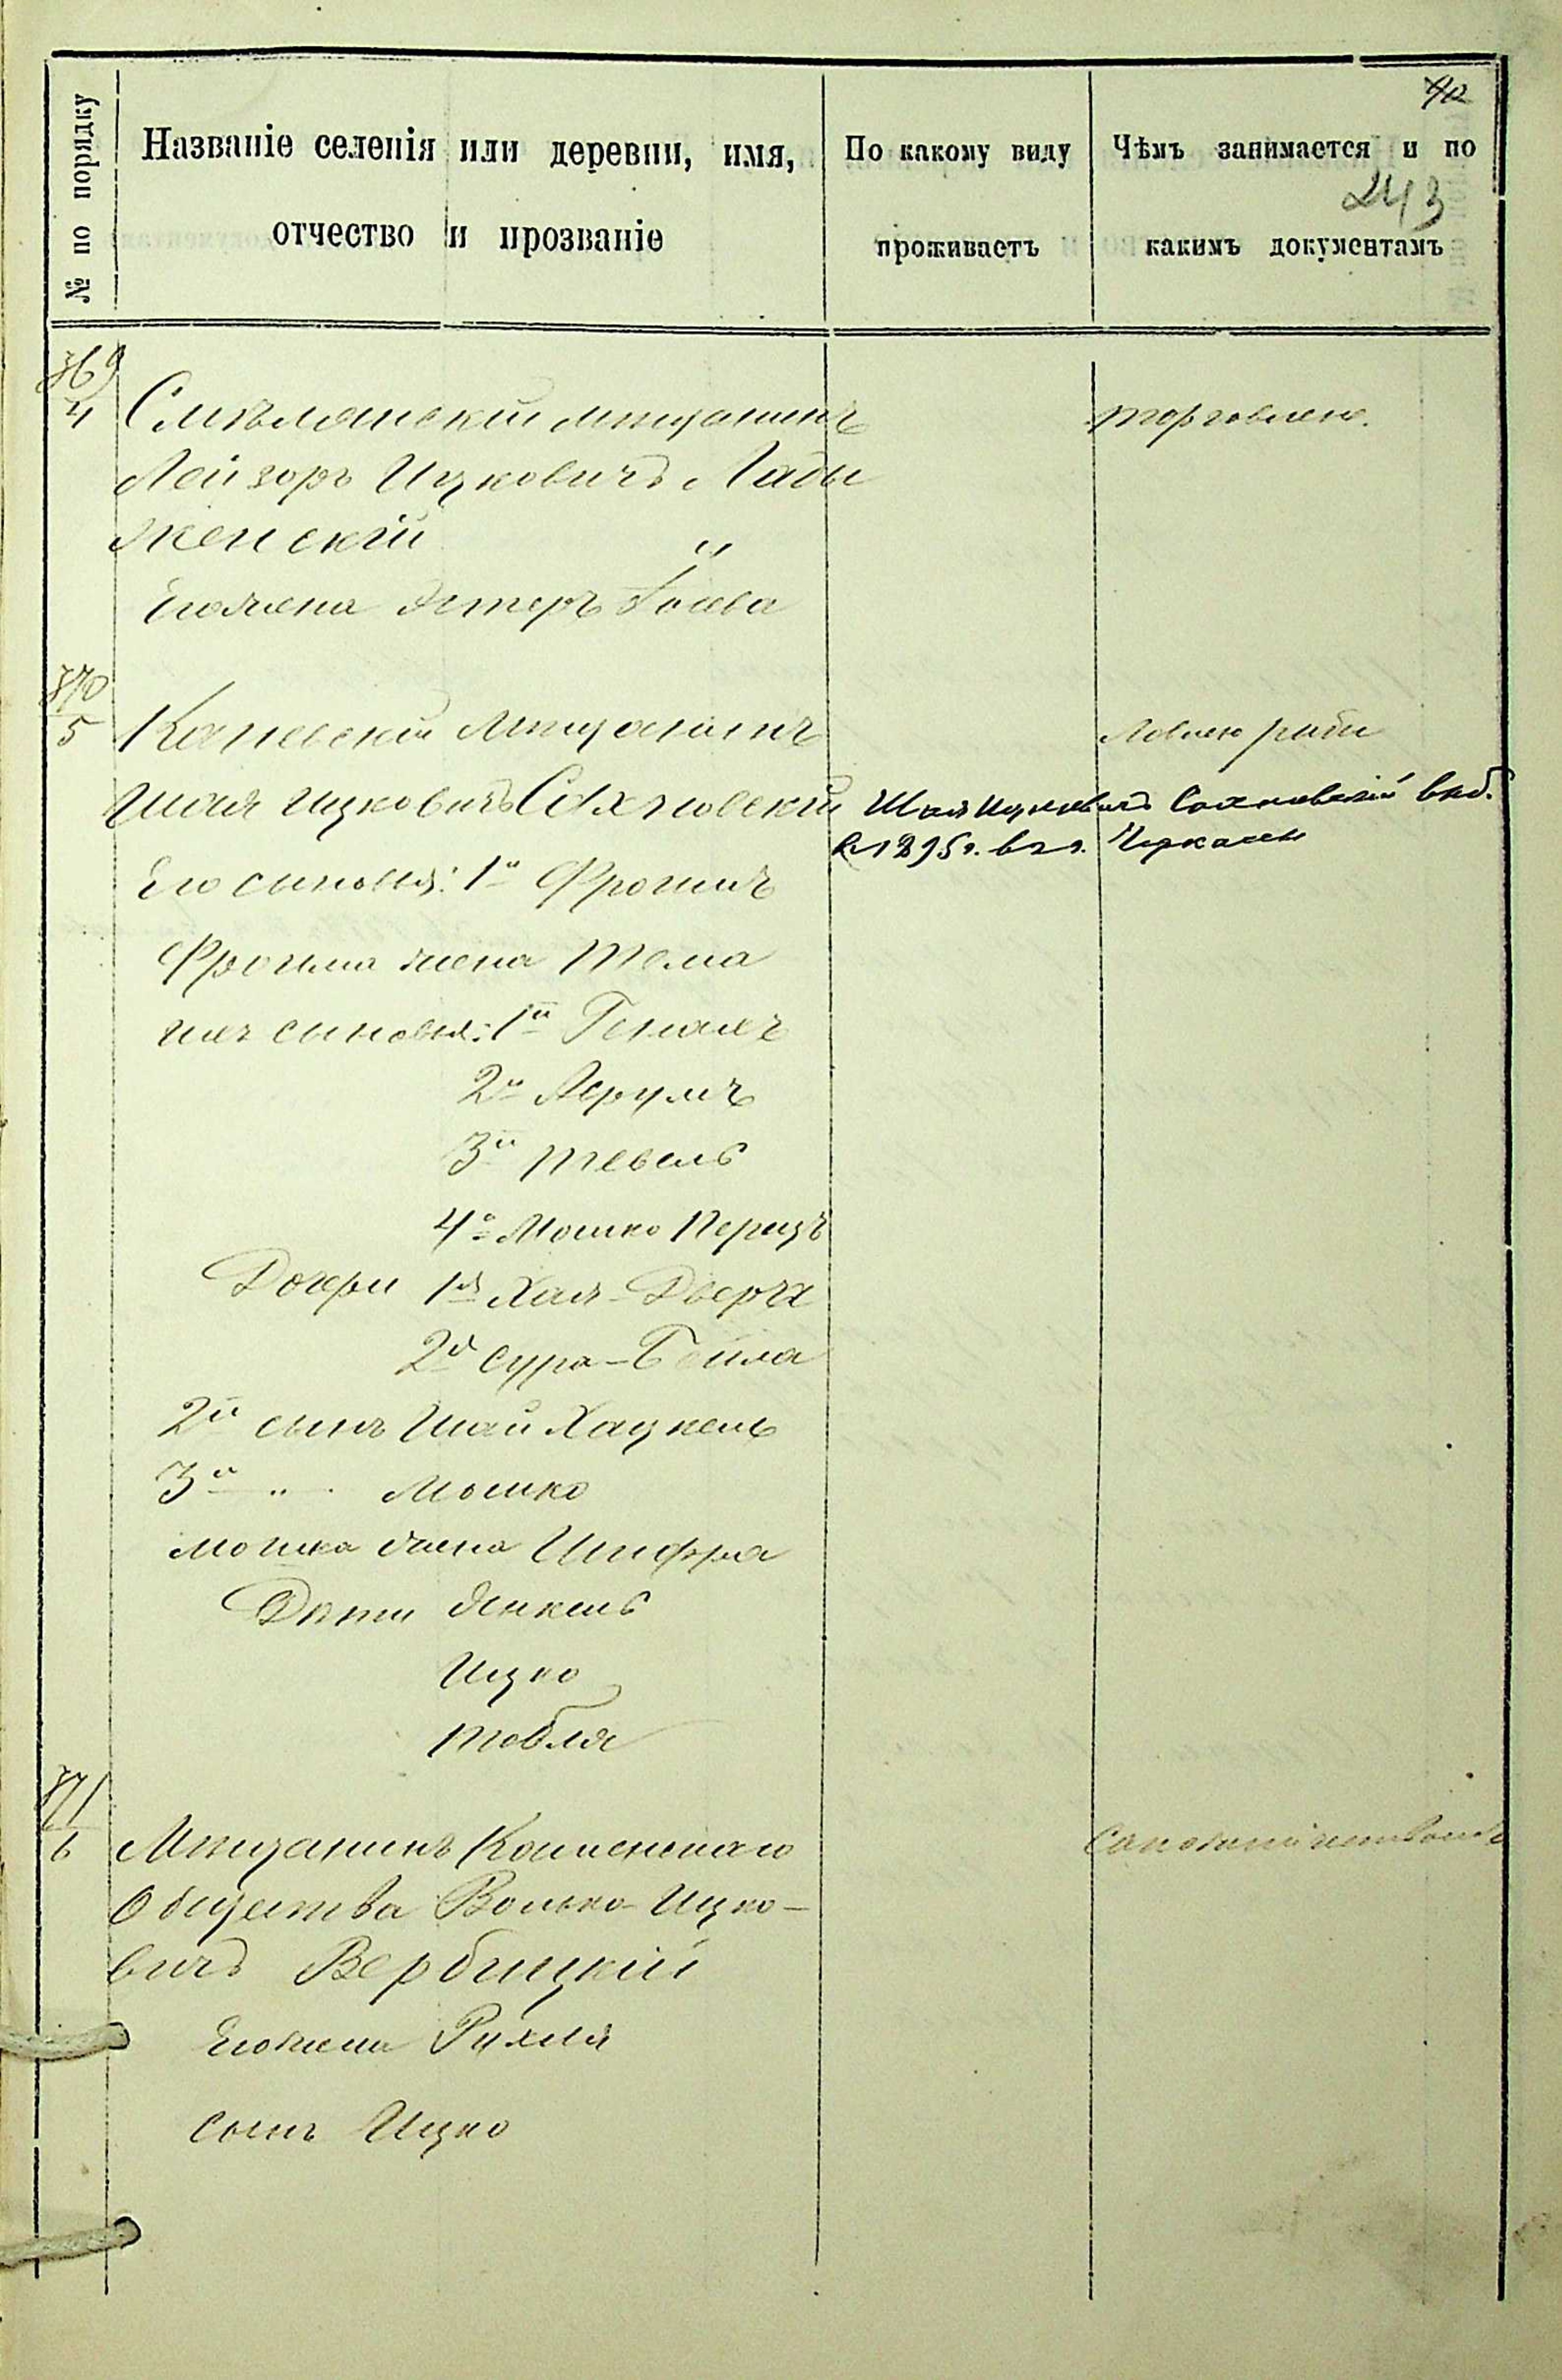 42
№ по порядку
Названіе селенія или деревни, имя,
отчество и прозваніе
По какому виду
проживаетъ
Чѣмъ занимается и по
какимъ документамъ
243
369
4
Смѣлянскій мѣщанинъ
торговлею.
Лейзоръ Ицковичъ Лады
женскій
Его жена Эстеръ
370
5
Каневскій мѣщанинъ
Ловлею рыбы
Шая Ицковичъ Сахновскій
Шая Ицковичъ Сахновскій выб.
в 1895 г. в г. Черкассы
Его сыновья: 1й Фроимъ
Фроима жена Тема
ихъ сыновья: 1й Генахъ
2й Лерумъ
3й Тевель
4й Мошко Перецъ
Дочери 1я Хая-Двера
2я Сура-Бейла
2й сынъ Шаи Хацкель
3й " Мошко
Мошка жена Шифра
Дѣти Янкель
Ицко
Товля
371
6
Мѣщанинъ
Общества Волько Ицко-
вичъ Вербицкій
Его жена Рухля
сынъ Ицко